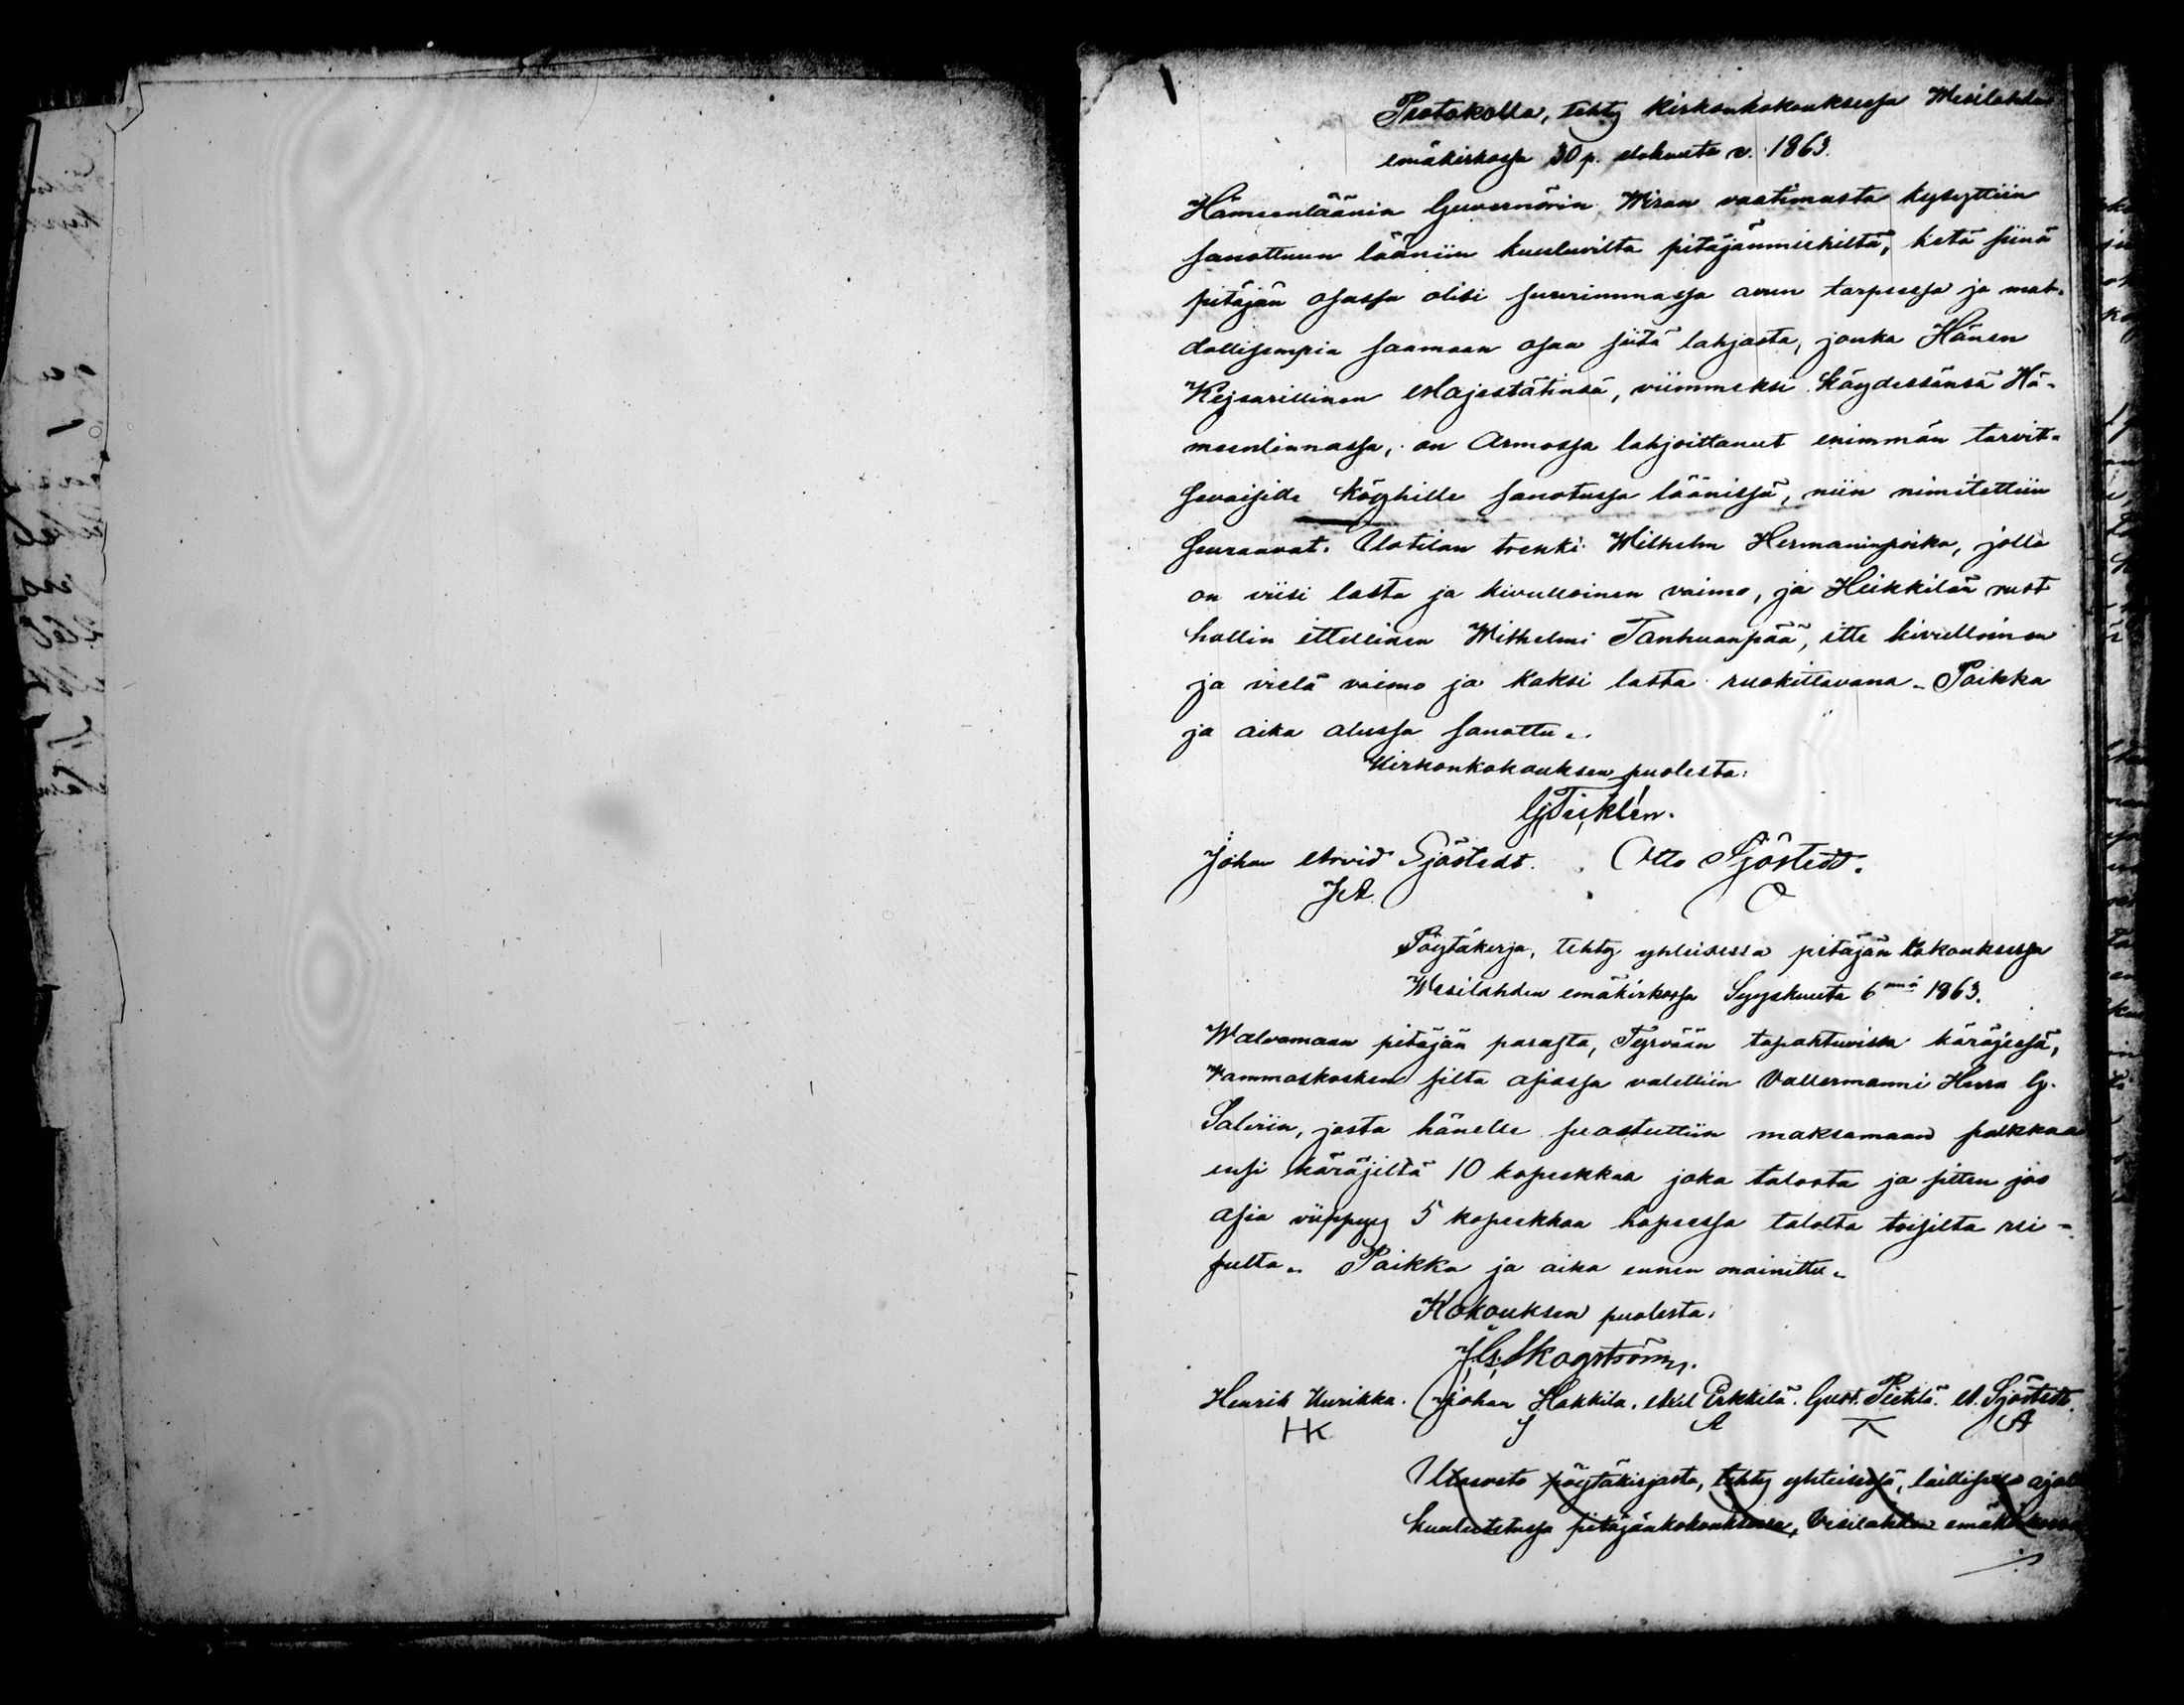 Protokolla, tehty kirkonkokouksessa Wesilahden
emäkirkossa 30 p. elokuuta v. 1863.
Hämeenläänin Guvernörin Wiran vaatimusta kysyttiin
sanottuun lääniin kuuluvilta pitäjänmiehiltä, ketä siinä
pitäjän osassa olisi suurimmassa avun tarpeessa ja mah-
dollisempia saamaan osaa siitä lahjasta, jonka Hänen
Kejsarillinen Majestätinsä, viimmeksi käydessänsä Hä-
meenlinnassa, on Armossa lahjoittanut enimmän tarvit-
sevaisille köyhille sanotussa läänissä, niin nimitettiin
seuraavat. Uotilan trenki Wilhelm Hermaninpoika, jolla
on viisi lasta ja kivulloinen vaimo, ja Heikkilän rust
hallin ittellinen Wilhelmi Tanhuanpää, itte kivulloinen
ja vielä vaimo ja kaksi lasta ruokittavana. Paikka
ja aika alussa sanottu.
Kirkonkokouksen puolesta:
Johan Arvid Sjöstedt. Otto Sjöstedt.
JA O
Pöytäkerja, tehty yhteisessä pitäjän kokouksessa
Wesilahden emäkirkossa Syyskuuta 6 1863.
Walvomaan pitäjän parasta, Tyrvään tapahtuvissa käräjissä,
Wammaskosken silta asiassa valettiin Vallermanni Herra G.
Salerin, josta hänelle suostuttiin maksamaan palkkaa
ensi käräjiltä 10 kopeekkaa joka talosta ja sitten jos
asia viippyy 5 kopeekkaa hopeessa talolta toisilta rei-
sulta. Paikka ja aika ennen mainittu.
Kokouksen puolesta:
J. G. Skogström.
Henrik Kurikka. Johan Hakkila. Akel Erkkilä. Gust. Pietilä. A. Sjöstedt.
HK J A A
Ulosveto pöytäkirjasta, tehty yhteisessä, laillisesa ajalla
kuulutetussa pitäjänkokouksessa, Vesilahden emäkirkossa